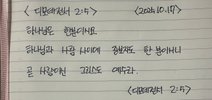 < 디모데전서 2:5 > (2024.10.17)
하나님은 한분이시요
하나님과 사람 사이에 중보자도 한 분이시니
곧 사람이신 그리스도 예수라.
< 디모데전서 2:5 >